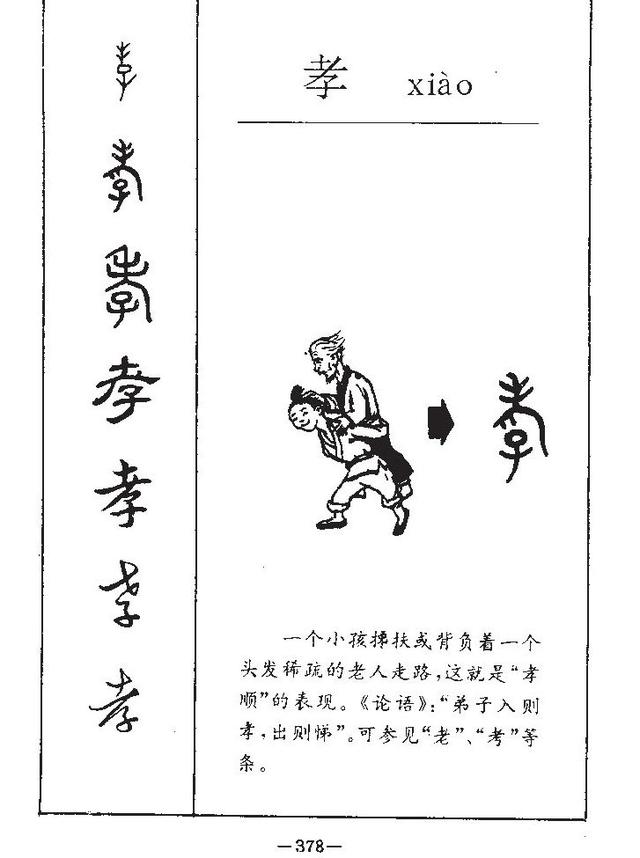 孝 xiào
孝
孝
孝
孝
孝
孝
孝
孝
一个小孩搀扶或背负着一个
头发稀疏的老人走路，这就是“孝
顺”的表现。《论语》：“弟子入则
孝，出则悌”。可参见“老”、“考”等
条。
—378—